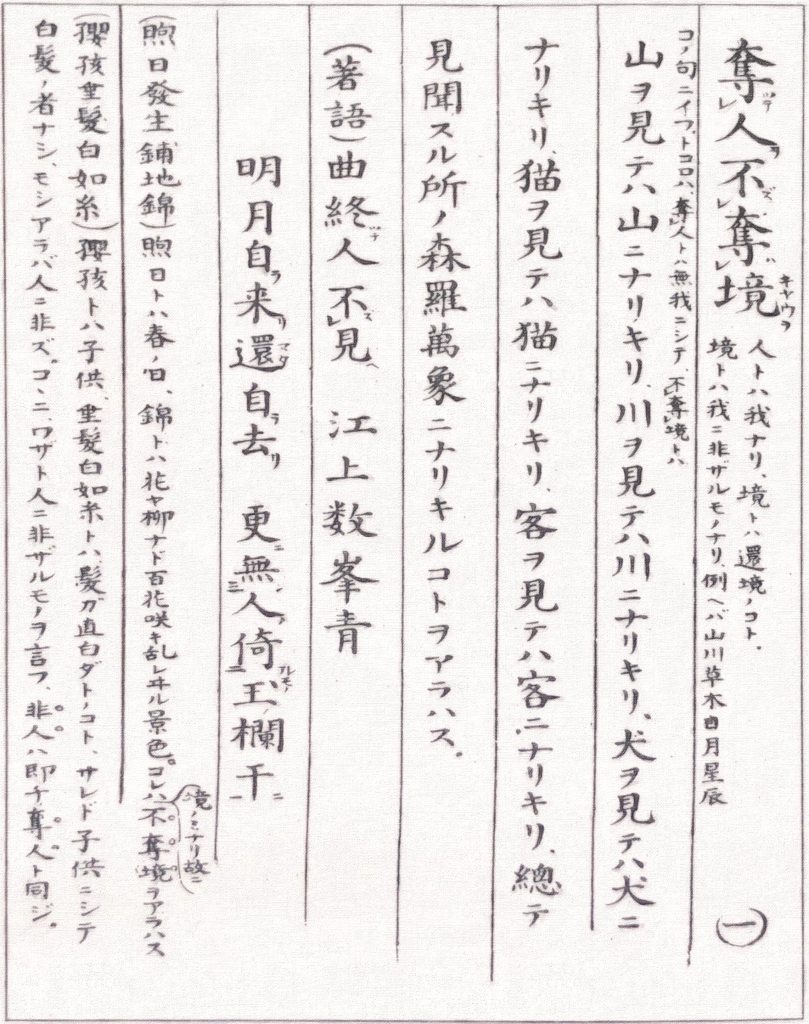 奪レ人ヲ不レ奪レ境ヲ
人トハ我ナリ、境トハ還境ノコト、
境トハ我ニ非ザルモノナリ、例ヘバ山川草木日月星辰
(一)
コノ句ニイフトコロハ、奪人トハ無我ニシテ、不奪境トハ
山ヲ見テハ山ニナリキリ、川ヲ見テハ川ニナリキリ、犬ヲ見テハ犬ニ
ナリキリ、猫ヲ見テハ猫ニナリキリ、客ヲ見テハ客ニナリキリ、總テ
見聞スル所ノ森羅萬象ニナリキルコトヲアラハス。
(著語)曲終人不見 江上数峯青
明月自来還自去 更無人倚玉欄干
(煦日發生鋪地錦)煦日トハ春ノ日、錦トハ花ヤ柳ナド百花咲キ乱レヰル景色。コレハ不奪境ヲアラハス
境ノミナリ故ニ
(孾孩垂髮白如糸)孾孩トハ子供、垂髮白如糸トハ、髮ガ真白ダトノコト、サレド子供ニシテ
白髮ノ者ナシ、モシアラバ人ニ非ズ。コヽニ、ワザト人ニ非ザルモノヲ言フ、非人ハ即チ奪人ト同ジ。